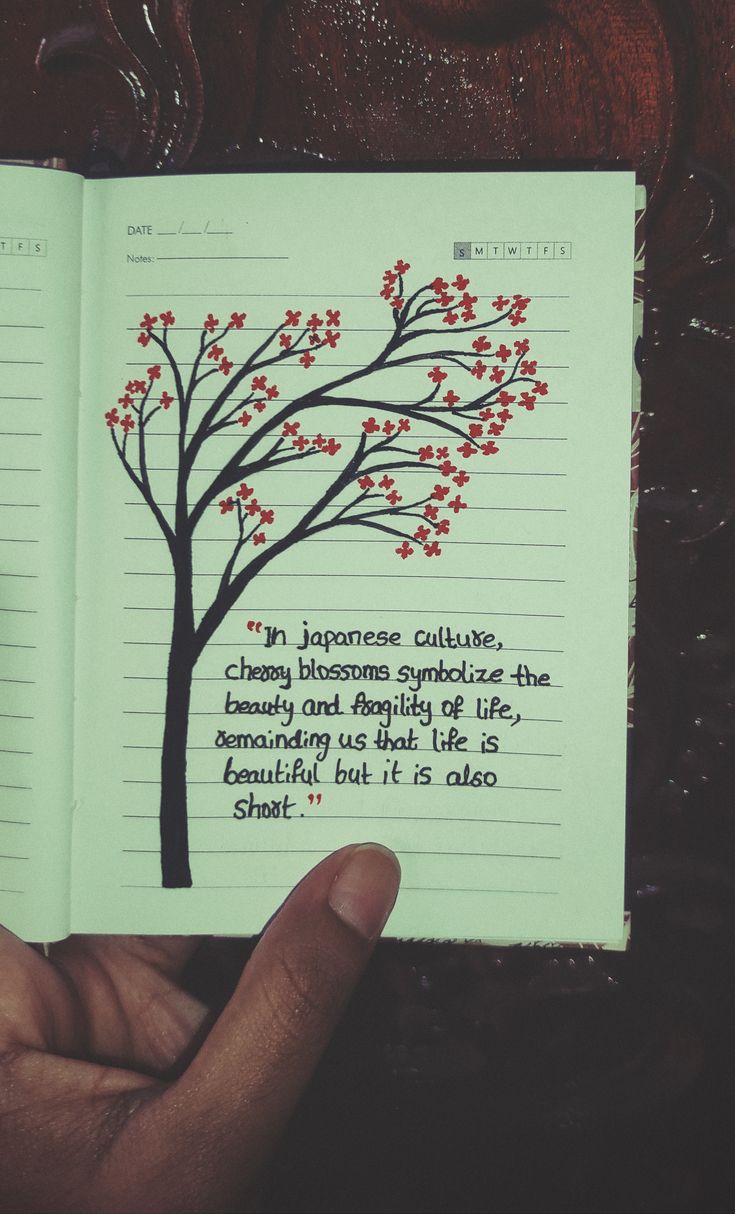 T F S
DATE __/__/__
S M T W T F S
Notes:
"In japanese culture,
cherry blossoms symbolize the
beauty and fragility of life,
remainding us that life is
beautiful but it is also
short."